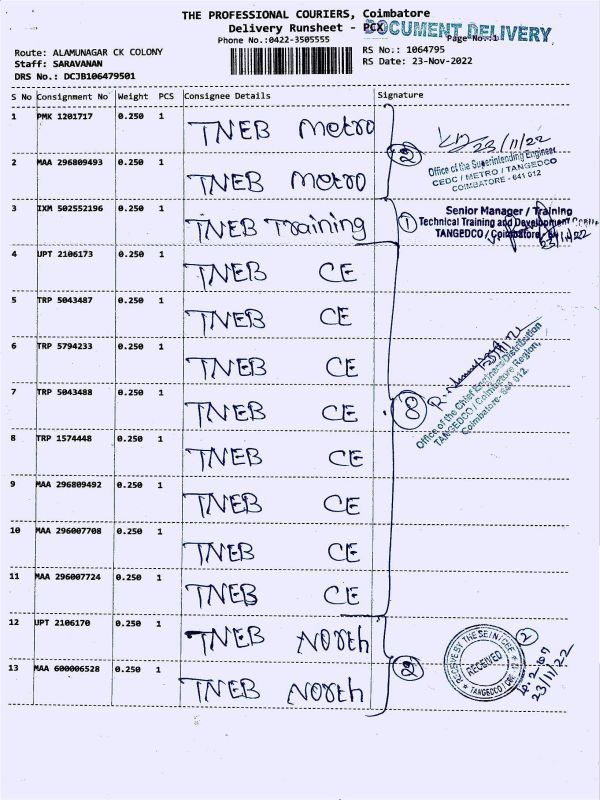 THE PROFESSIONAL COURIERS, Coimbatore
Delivery Runsheet - PCX
DOCUMENT DELIVERY
Phone No.:0422-3505555
Page No.:1
Route: ALAMUNAGAR CK COLONY
RS No.: 1064795
Staff: SARAVANAN
RS Date: 23-Nov-2022
DRS No.: DCJB106479501
S No Consignment No Weight PCS Consignee Details Signature
1 PMK 1201717 0.250 1 TNEB Metro
2 MAA 296809493 0.250 1 TNEB Metro
2
23/11/22
Office of the Superintending Engineer
CEDC / METRO / TANGEDCO
COIMBATORE - 641 012
3 IXM 502552196 0.250 1 TNEB Training
1
Senior Manager / Training
Technical Training and Development
TANGEDCO / Coimbatore
23/11/22
4 UPT 2106173 0.250 1 TNEB CE
5 TRP 5043487 0.250 1 TNEB CE
6 TRP 5794233 0.250 1 TNEB CE
7 TRP 5043488 0.250 1 TNEB CE
8 TRP 1574448 0.250 1 TNEB CE
9 MAA 296809492 0.250 1 TNEB CE
10 MAA 296007708 0.250 1 TNEB CE
11 MAA 296007724 0.250 1 TNEB CE
8
Office of the Chief Engineer/Distribution
TANGEDCO / Coimbatore Region,
Coimbatore - 641 012.
12 UPT 2106170 0.250 1 TNEB North
13 MAA 600006528 0.250 1 TNEB North
2
RECEIVED
TANGEDCO / CBE
2
23/11/22